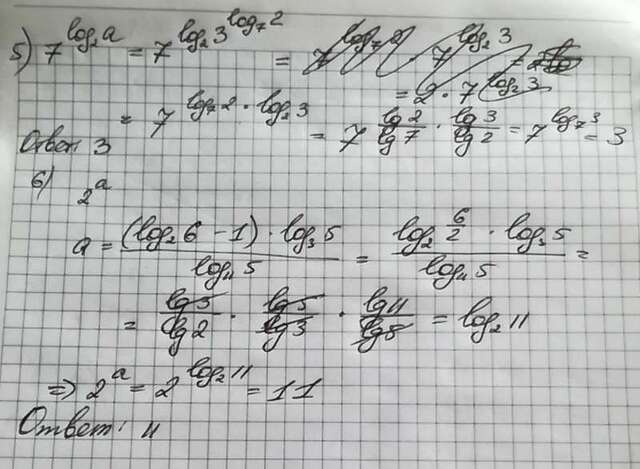 5) 7^{log₂a} = 7^{log₂3^{log₇2}} =
= 2 · 7^{log₂3}
= 7^{log₇2 · log₂3} = 7^{lg2/lg7 · lg3/lg2} = 7^{log₇3} = 3
Ответ: 3
6) 2^a
a = (log₂6 - 1) · log₃5 / log₁₁5 = log₂ 6/2 · log₃5 / log₁₁5 =
= lg3/lg2 · lg5/lg3 · lg11/lg5 = log₂11
=> 2^a = 2^{log₂11} = 11
Ответ: 11